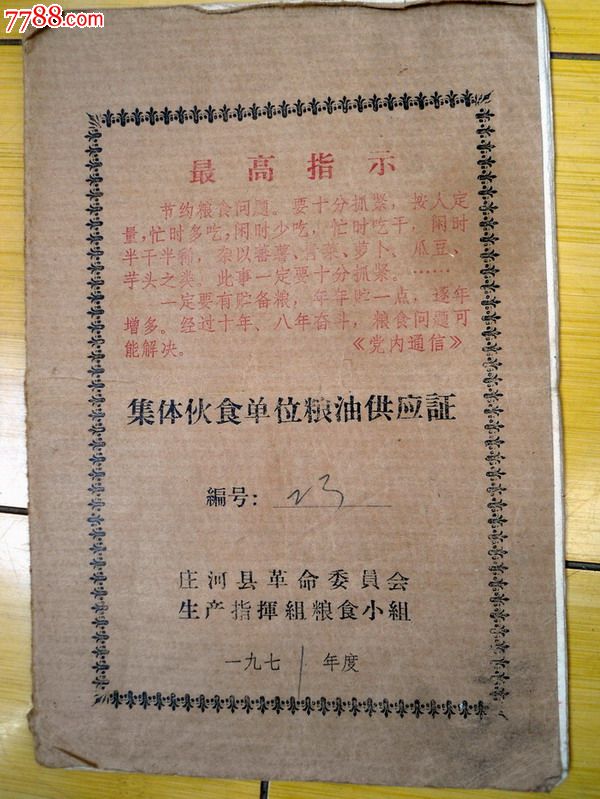 7788.com
最高指示
节约粮食问题。要十分抓紧，按人定
量,忙时多吃,闲时少吃,忙时吃干，闲时
半干半稀，杂以蕃薯、青菜、萝卜、瓜豆、
芋头之类。此事一定要十分抓紧。……
一定要有贮备粮，年年贮一点，逐年
增多。经过十年、八年奋斗，粮食问题可
能解决。《党内通信》
集体伙食单位粮油供应証
編号: 23
庄河县革命委員会
生产指揮組粮食小組
一九七1年度